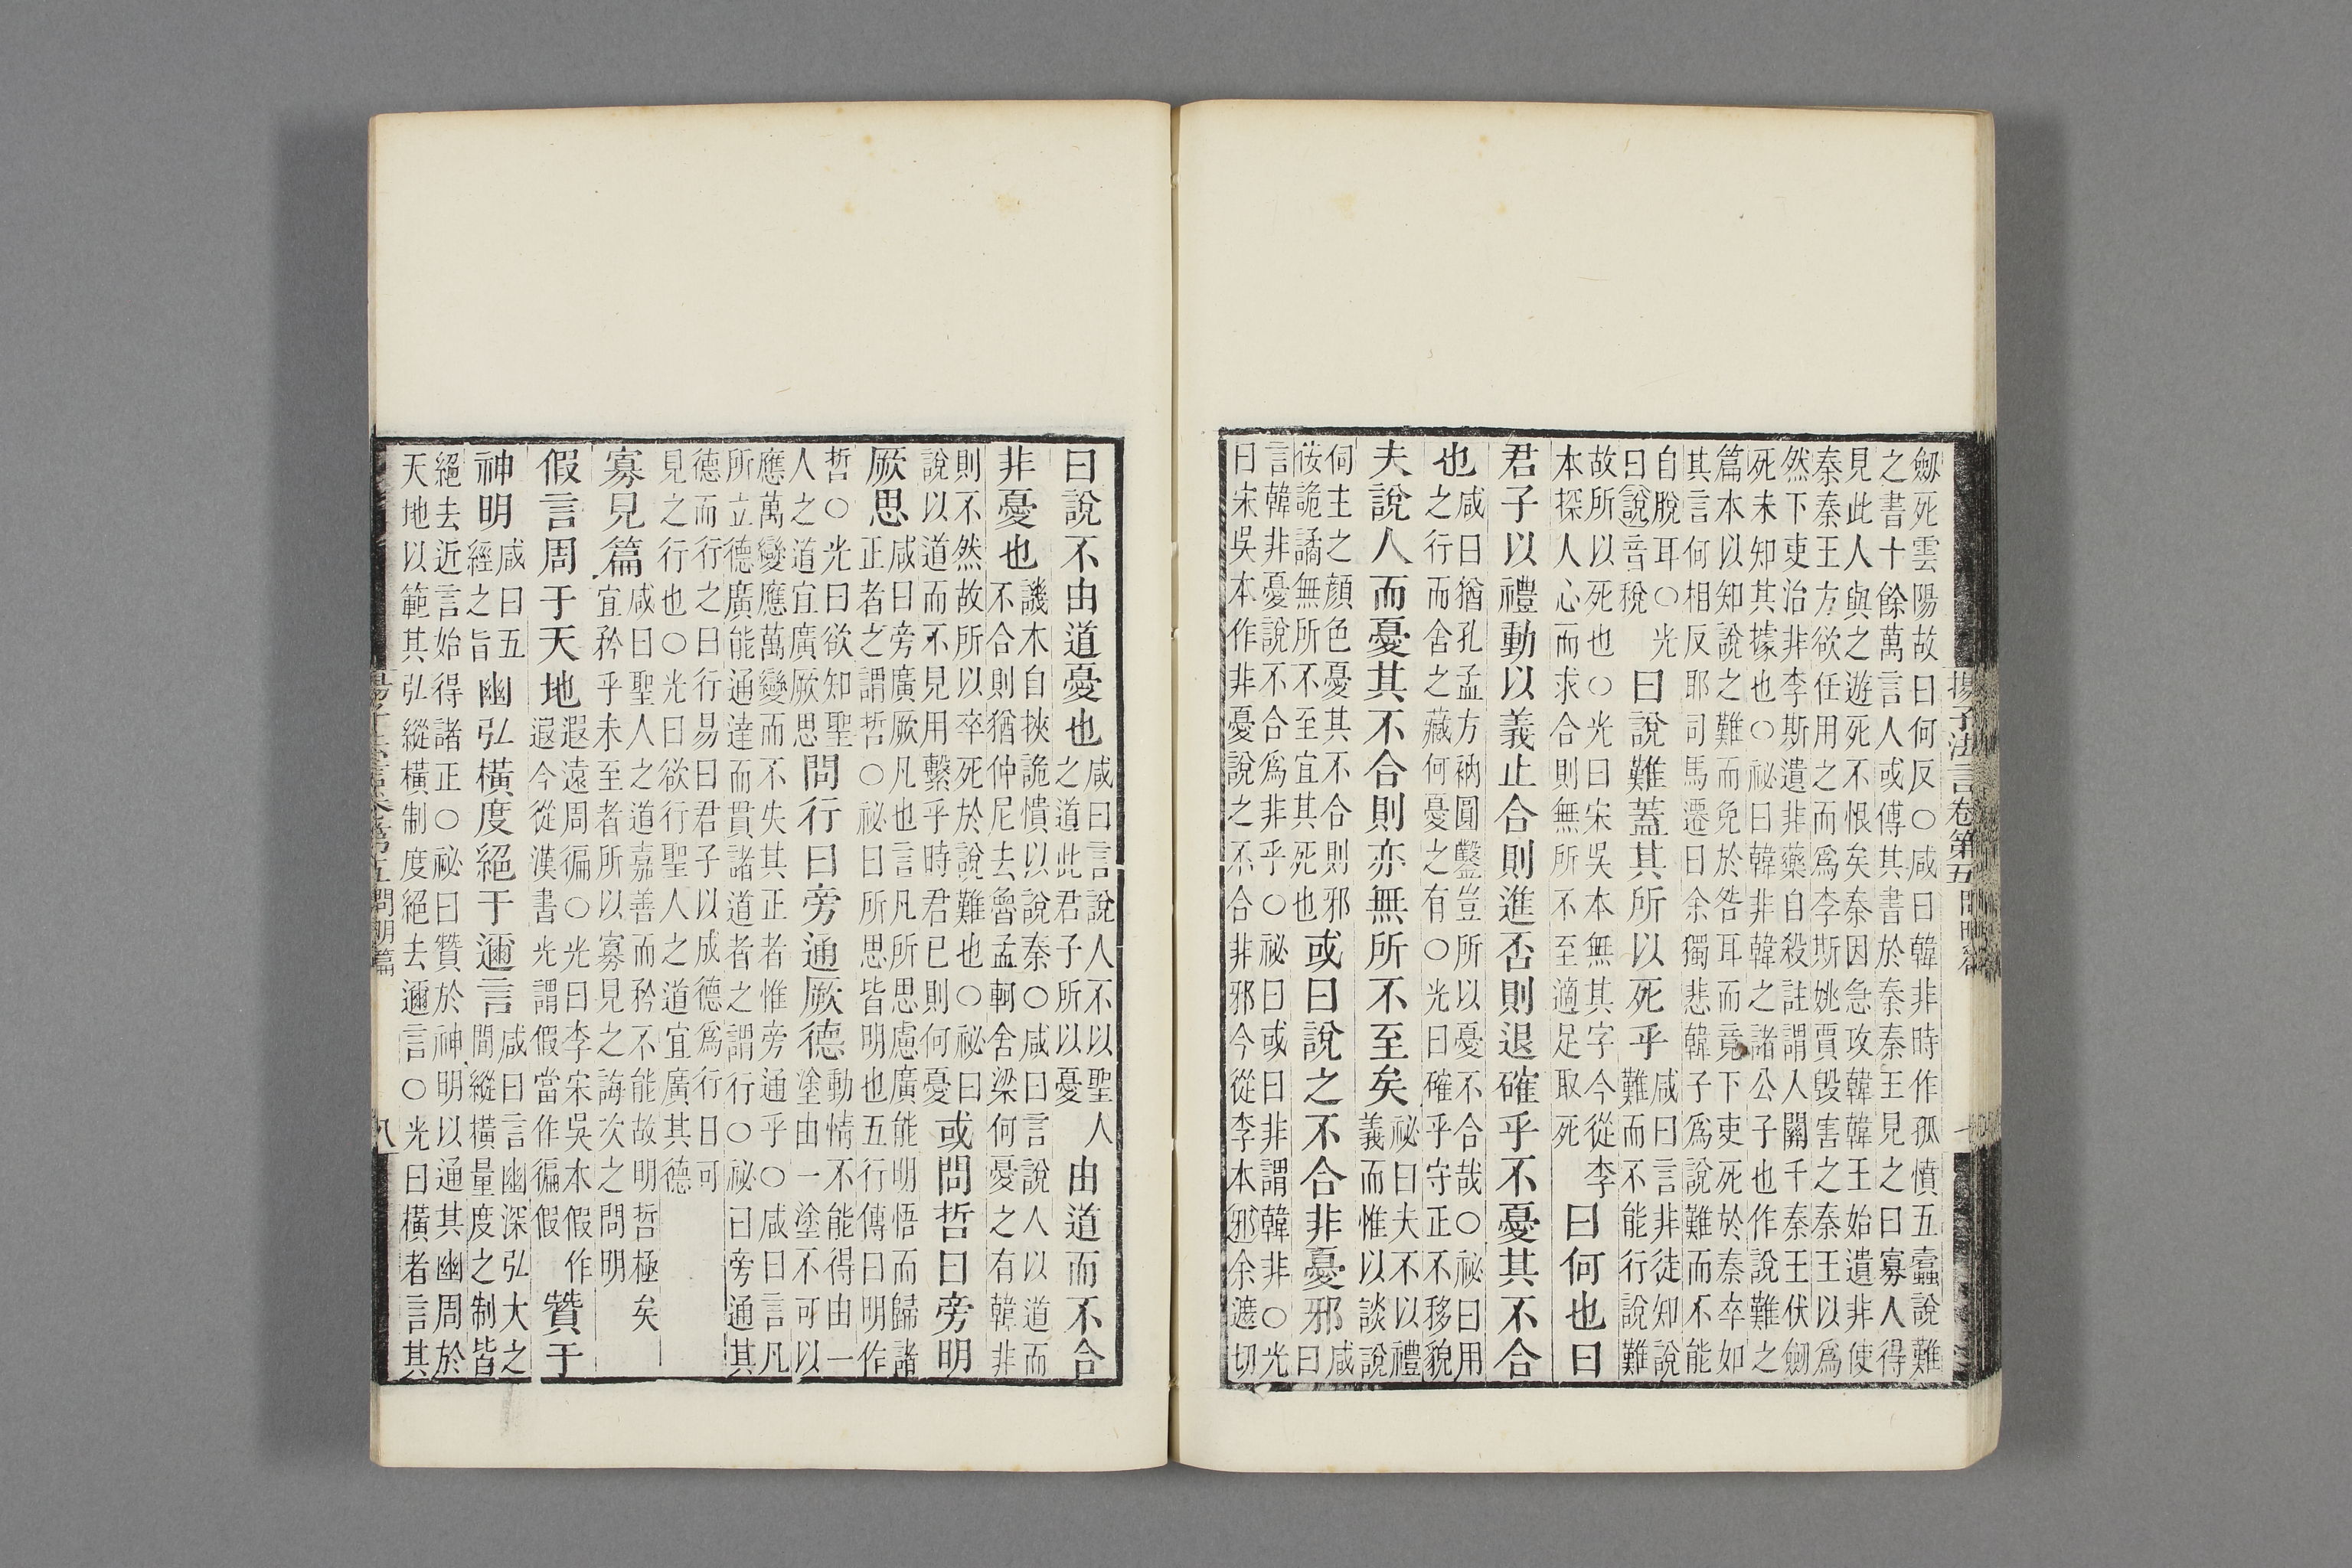 揚子法言卷第五
劒死雲陽故曰何反○咸曰韓非時作孤憤五蠹說難
之書十餘萬言人或傳其書於秦秦王見之曰寡人得
見此人與之遊死不恨矣秦因急攻韓韓王始遣非使
秦秦王方欲任用之而爲李斯姚賈毀害之秦王以爲
然下吏治非李斯遺非藥自殺註謂人關千秦王伏劒
死未知其據也○祕曰韓非韓之諸公子也作說難之
篇本以知說之難而免於咎耳而竟下吏死於秦卒如
其言何相反耶司馬遷曰余獨悲韓子爲說難而不能
自脫耳○光
曰說音稅
曰說難蓋其所以死乎
咸曰言非徒知說
難而不能行說難
故所以死也○光曰宋吳本無其字今從李
本探人心而求合則無所不至適足取死
曰何也曰
君子以禮動以義止合則進否則退確乎不憂其不合
也
咸曰猶孔孟方衲圓鑿豈所以憂不合哉○祕曰用
之行而舍之藏何憂之有○光曰確乎守正不移貌
夫說人而憂其不合則亦無所不至矣
祕曰夫不以禮
義而惟以談說
伺主之顏色憂其不合則邪
侫詭譎無所不至宜其死也
或曰說之不合非憂邪
咸
曰
言韓非憂說不合爲非乎○祕曰或曰非謂韓非○光
曰宋吳本作非憂說之不合非邪今從李本邪余遮切
曰說不由道憂也
咸曰言說人不以聖人
之道此君子所以憂
由道而不合
非憂也
譏木自挾詭憒以說秦○咸曰言說人以道而
不合則猶仲尼去魯孟軻舍梁何憂之有韓非
則不然故所以卒死於說難也○祕曰
說以道而不見用繫乎時君已則何憂
或問哲曰旁明
厥思
咸曰旁廣厥凡也言凡所思慮廣能明悟而歸諸
正者之謂哲○祕曰所思皆明也五行傳曰明作
哲○光曰欲知聖
人之道宜廣厥思
問行曰旁通厥德
動情不能得由一
塗由一塗不可以
應萬變應萬變而不失其正者惟旁通乎○咸曰言凡
所立德廣能通達而貫諸道者之謂行○祕曰旁通其
德而行之曰行易曰君子以成德爲行日可
見之行也○光曰欲行聖人之道宜廣其德
寡見篇
咸曰聖人之道嘉善而矜不能故明哲極矣
宜矜乎未至者所以寡見之誨次之問明
假言周于天地
遐遠周徧○光曰李宋吳本假作
遐今從漢書光謂假當作徧假
贊于
神明
咸曰五
經之旨
幽弘橫度絕于邇言
咸曰言幽深弘大之
間縱橫量度之制皆
絕去近言始得諸正○祕曰贊於神明以通其幽周於
天地以範其弘縱橫制度絕去邇言○光曰橫者言其
問明篇
八